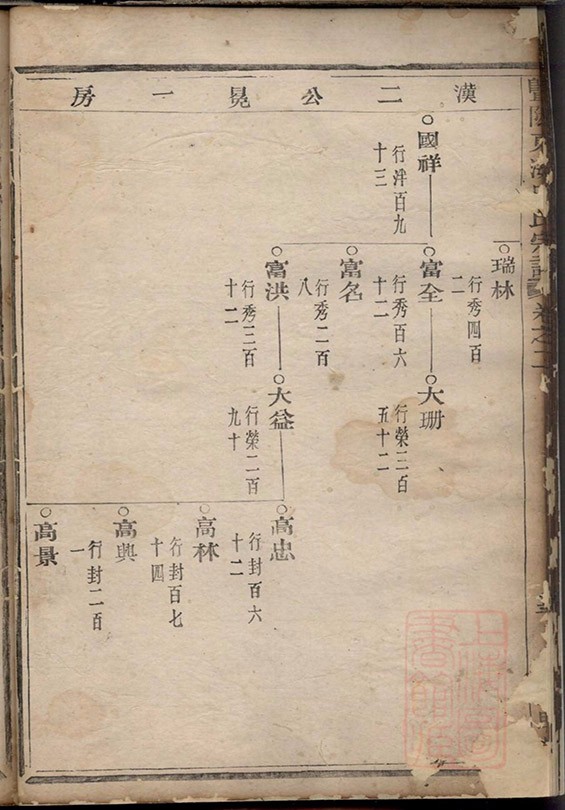 漢二公晃一房
瑞林
行秀四百
二
國祥
行泮百九
十三
富全
行秀百六
十二
大珊
行榮三百
五十二
富名
行秀二百
八
富洪
行秀三百
十二
大益
行榮二百
九十
高忠
行封百六
十二
高林
行封百七
十四
高興
行封二百
一
高景
宗譜卷之二